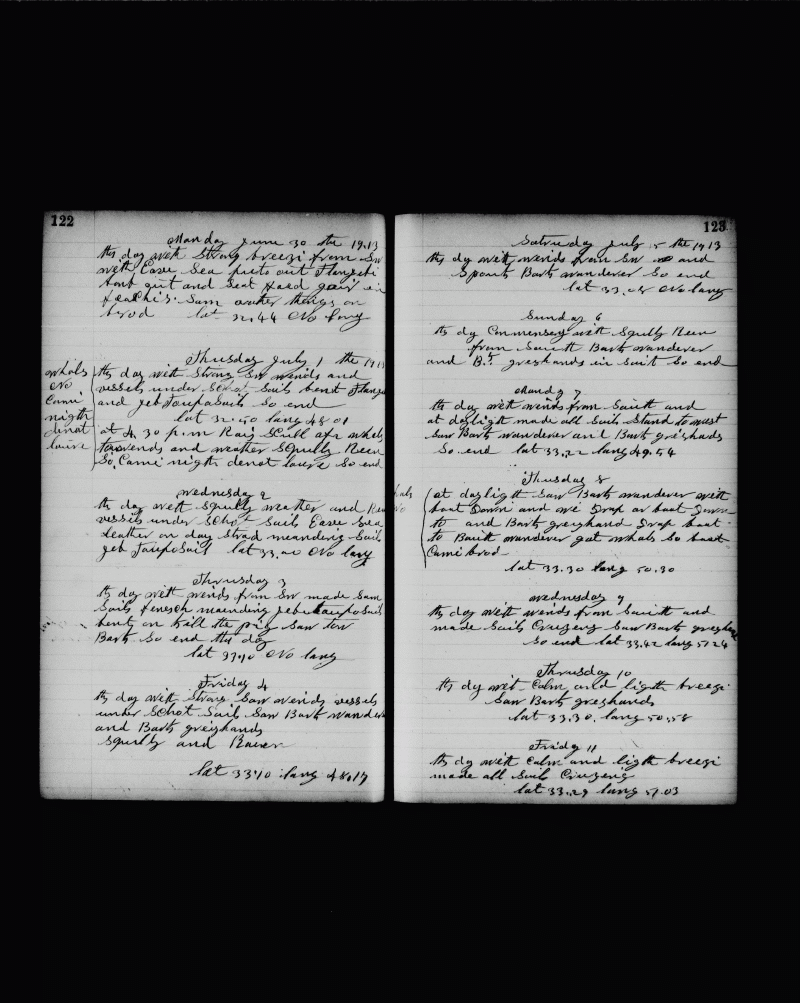 122
Monday June 30 the 1913
ths day witt Strong breezi from Sw
witt Easve Sea puts out Flangebi
bout out and Seat Head gair in
Sam outher things on
brod lat 32.44 No long
Thusday July 1 the 1913
ths day witt Strong Sw winds and
vessels under Schot Sails bent Flange
and jeb Tauposails So end
lat 32.50 long 48.01
at 4.30 p.m Raig Scull afr whals
winds and weather Squlls Reen
So Cami nigth denot louire So end
whals
No
Cami
nigth
denot
louire
wednesday 2
ths day witt Squlls weather and Reen
vessels under Schot Sails Easve Sea
leather on day Strad meanding Sails
jeb Taupo Sail lat 33.00 No long
Thrusday 3
ths day witt winds from Sw made Sam
Sails fenesch meanding jeb taupo Sail
bent on kill the pig Saw tow
Barks So end ths day
lat 33.10 No long
Friday 4
ths day witt Strong Saw winds vessels
under Schot Sails Saw Bark wanderer
and Barks greyhands
Squlls and Raien
lat 33.10 long 48.17
123
Satruday July 5 the 1913
ths dy witt winds from Sw and
Spoark Bark wanderer So end
lat 33.08 No long
Sunday 6
ths dy Commensey witt Squlls Reen
from Saurth Bark wanderer
and Bk greyhands in Sait So end
Mandy 7
ths day witt winds from Saurth and
at dayligth made all Sails Stand to west
Saw Bark wanderer and Bark greihands
So end lat 33.22 long 49.54
Thusday 8
whals
No
at dayligth Saw Bark wanderer witt
boat Down and wi Drap ar boat Down
to and Bark greyhand Drap boat
to Bark wanderer gat whals So boat
Cami brod
lat 33.30 long 50.30
wednesday 9
ths day witt winds from Saurth and
made Sails Cruzeng Saw Bark greyhand
So end lat 33.42 long 51.24
Thrusday 10
ths dy wit Calm and ligth breezi
Saw Bark greyhands
lat 33.30. long 50.58
Fridy 11
ths dy witt Calm and ligth breezi
made all Sails Cruzeng
lat 33.29 long 51.03